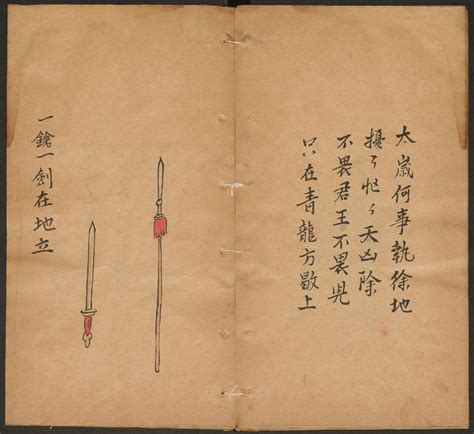 太歲何事執徐地
擾々忙々天凶除
不畏君王不畏
只在青龍方歇上
一鎗一劍在地立